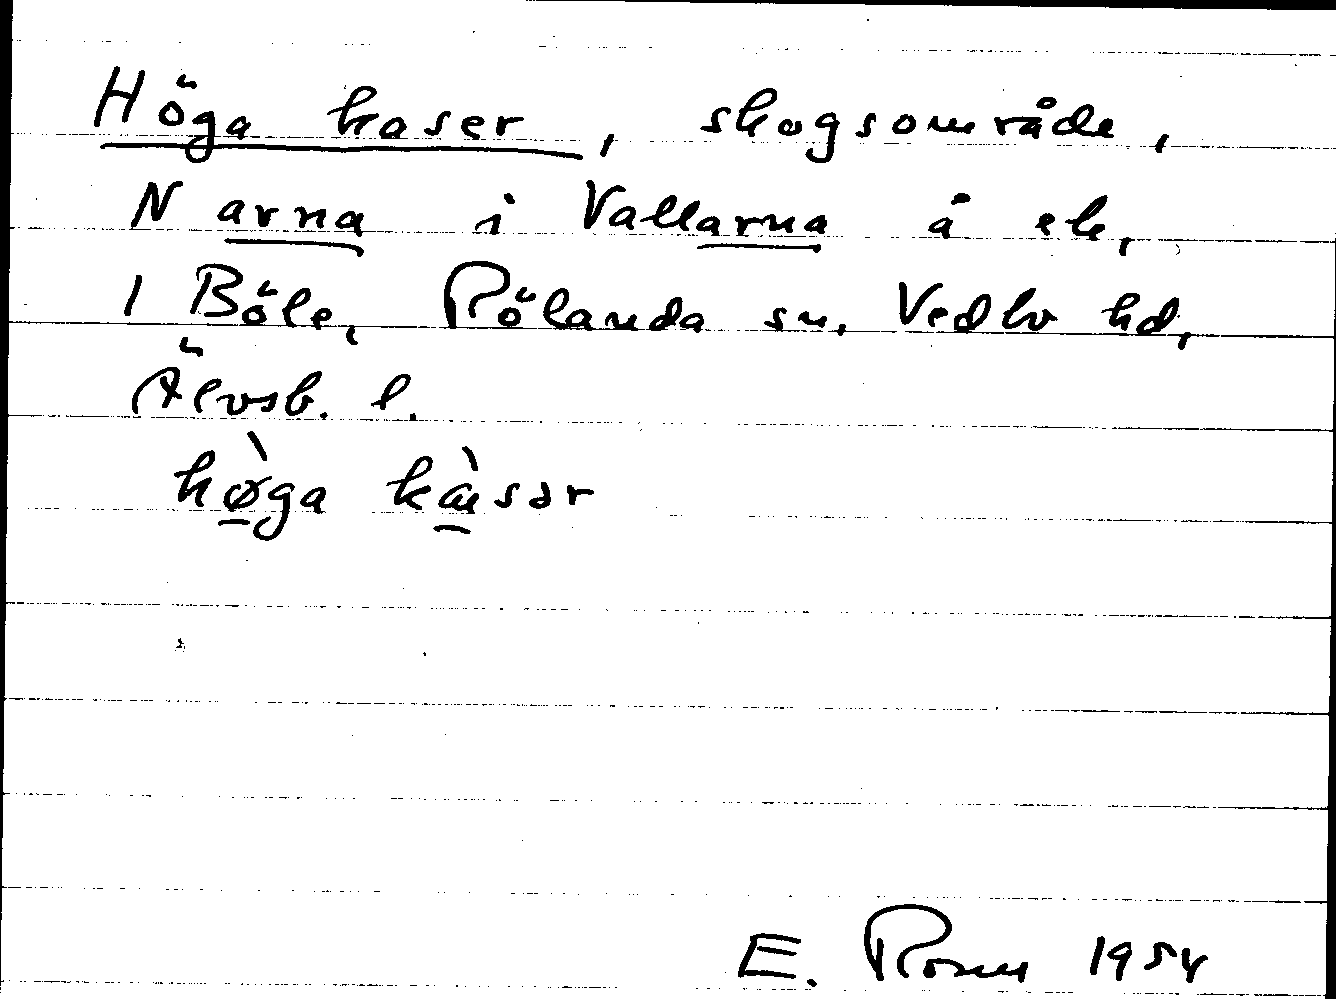 Höga kaser, skogsområde,
N arna i Vallarna å ek,
1 Böle, Rölanda sn. Vedbo hd,
Älvsb. l.
hø̀ga kàsər
E. 1954